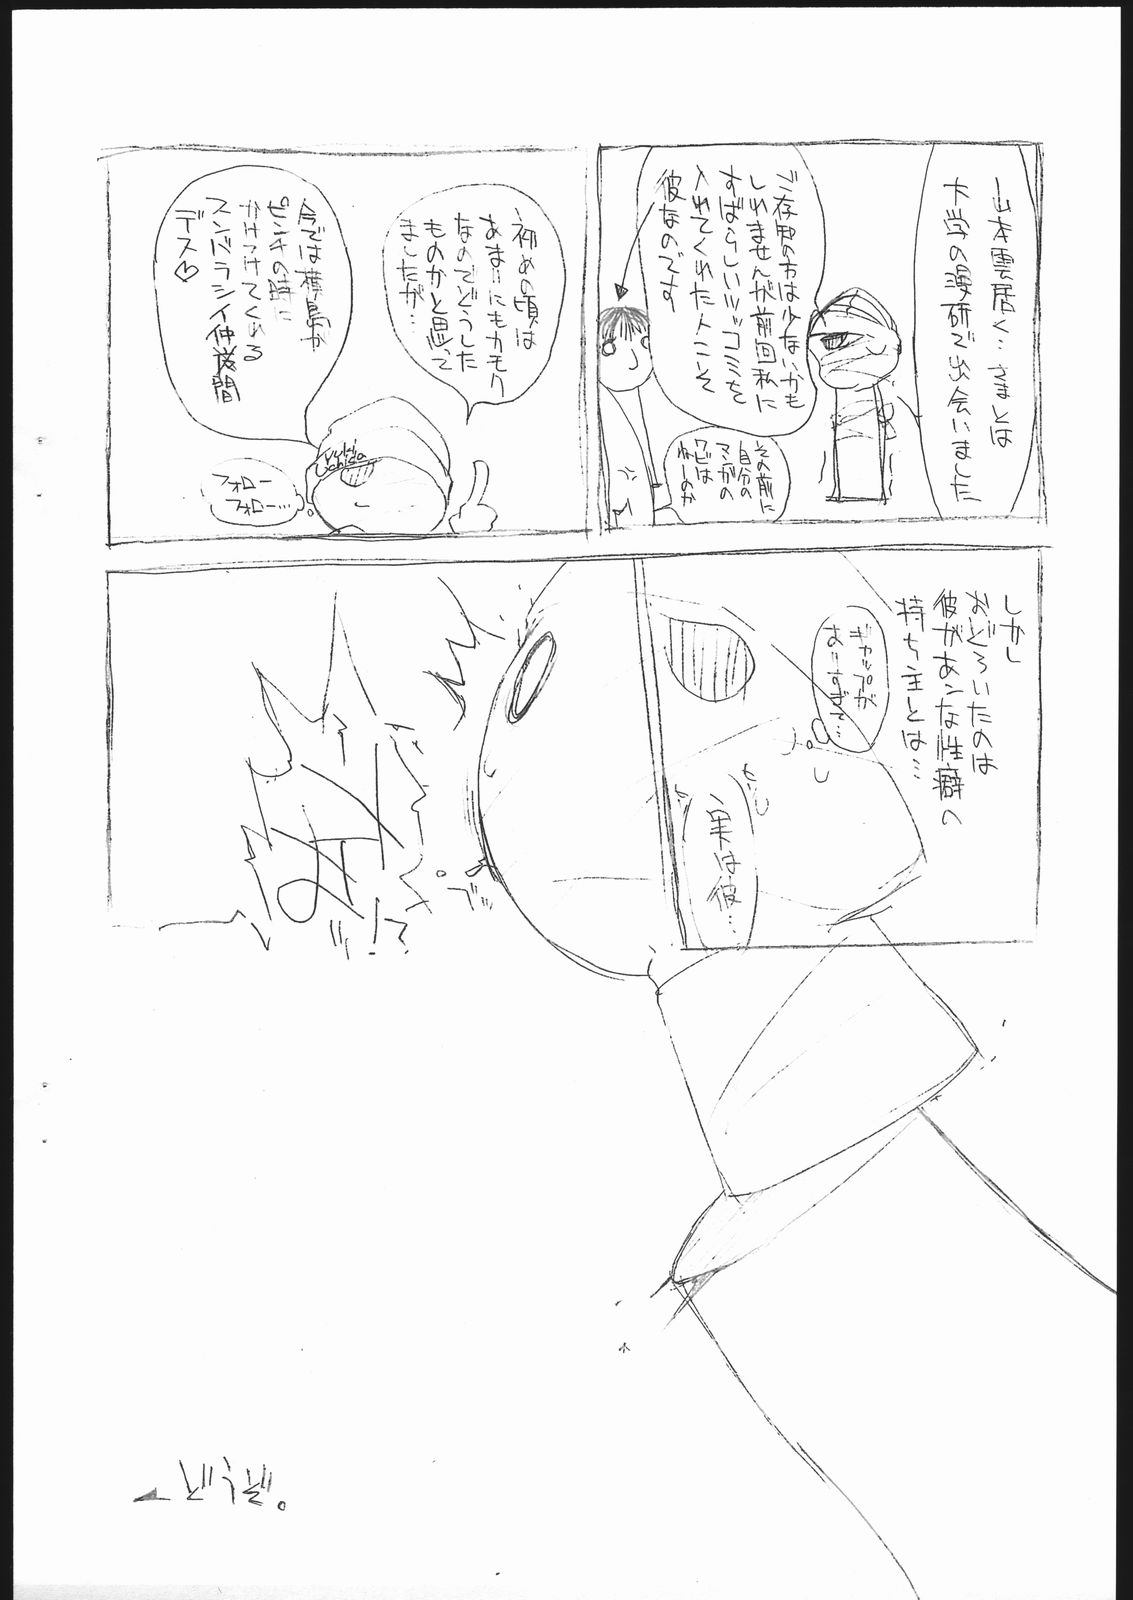 山本雲居く…さまとは
大学の漫研で出会いました
ご存知の方は少ないかも
しれませんが前回私に
すばらしいツッコミを
入れてくれた人こそ
彼なのです
その前に
自分の
マンガの
ワビは
ねーのか
初めの頃は
あまりにもカモク
なのでどうした
ものかと思って
ましたが…
今では樺島が
ピンチの時に
かけつけてくれる
スンバラシイ仲間
デス♡
yuki
uchida
フォロー
フォロー…
しかし
おどろいたのは
彼があンな性癖の
持ち主とは…
ギャップが
ありすぎて…
実は彼…
まさ
どうぞ。